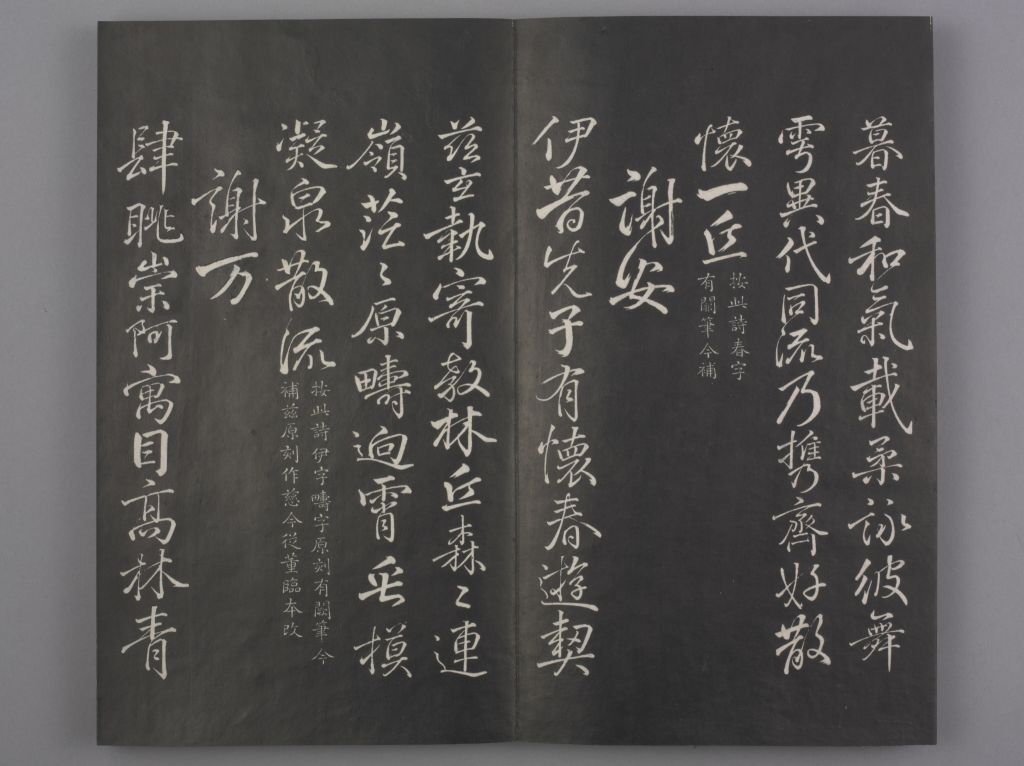 暮春和氣載柔詠彼舞
雩異代同流乃携齊好散
懷一丘
按此詩春字
有闕筆今補
謝安
伊昔先子有懷春遊契
茲玄執寄敖林丘森〻連
嶺茫〻原疇迥霄垂摸
凝泉散流
按此詩伊字疇字原刻有闕筆今
補茲原刻作慈今從董臨本改
謝万
肆眺崇阿寓目高林青